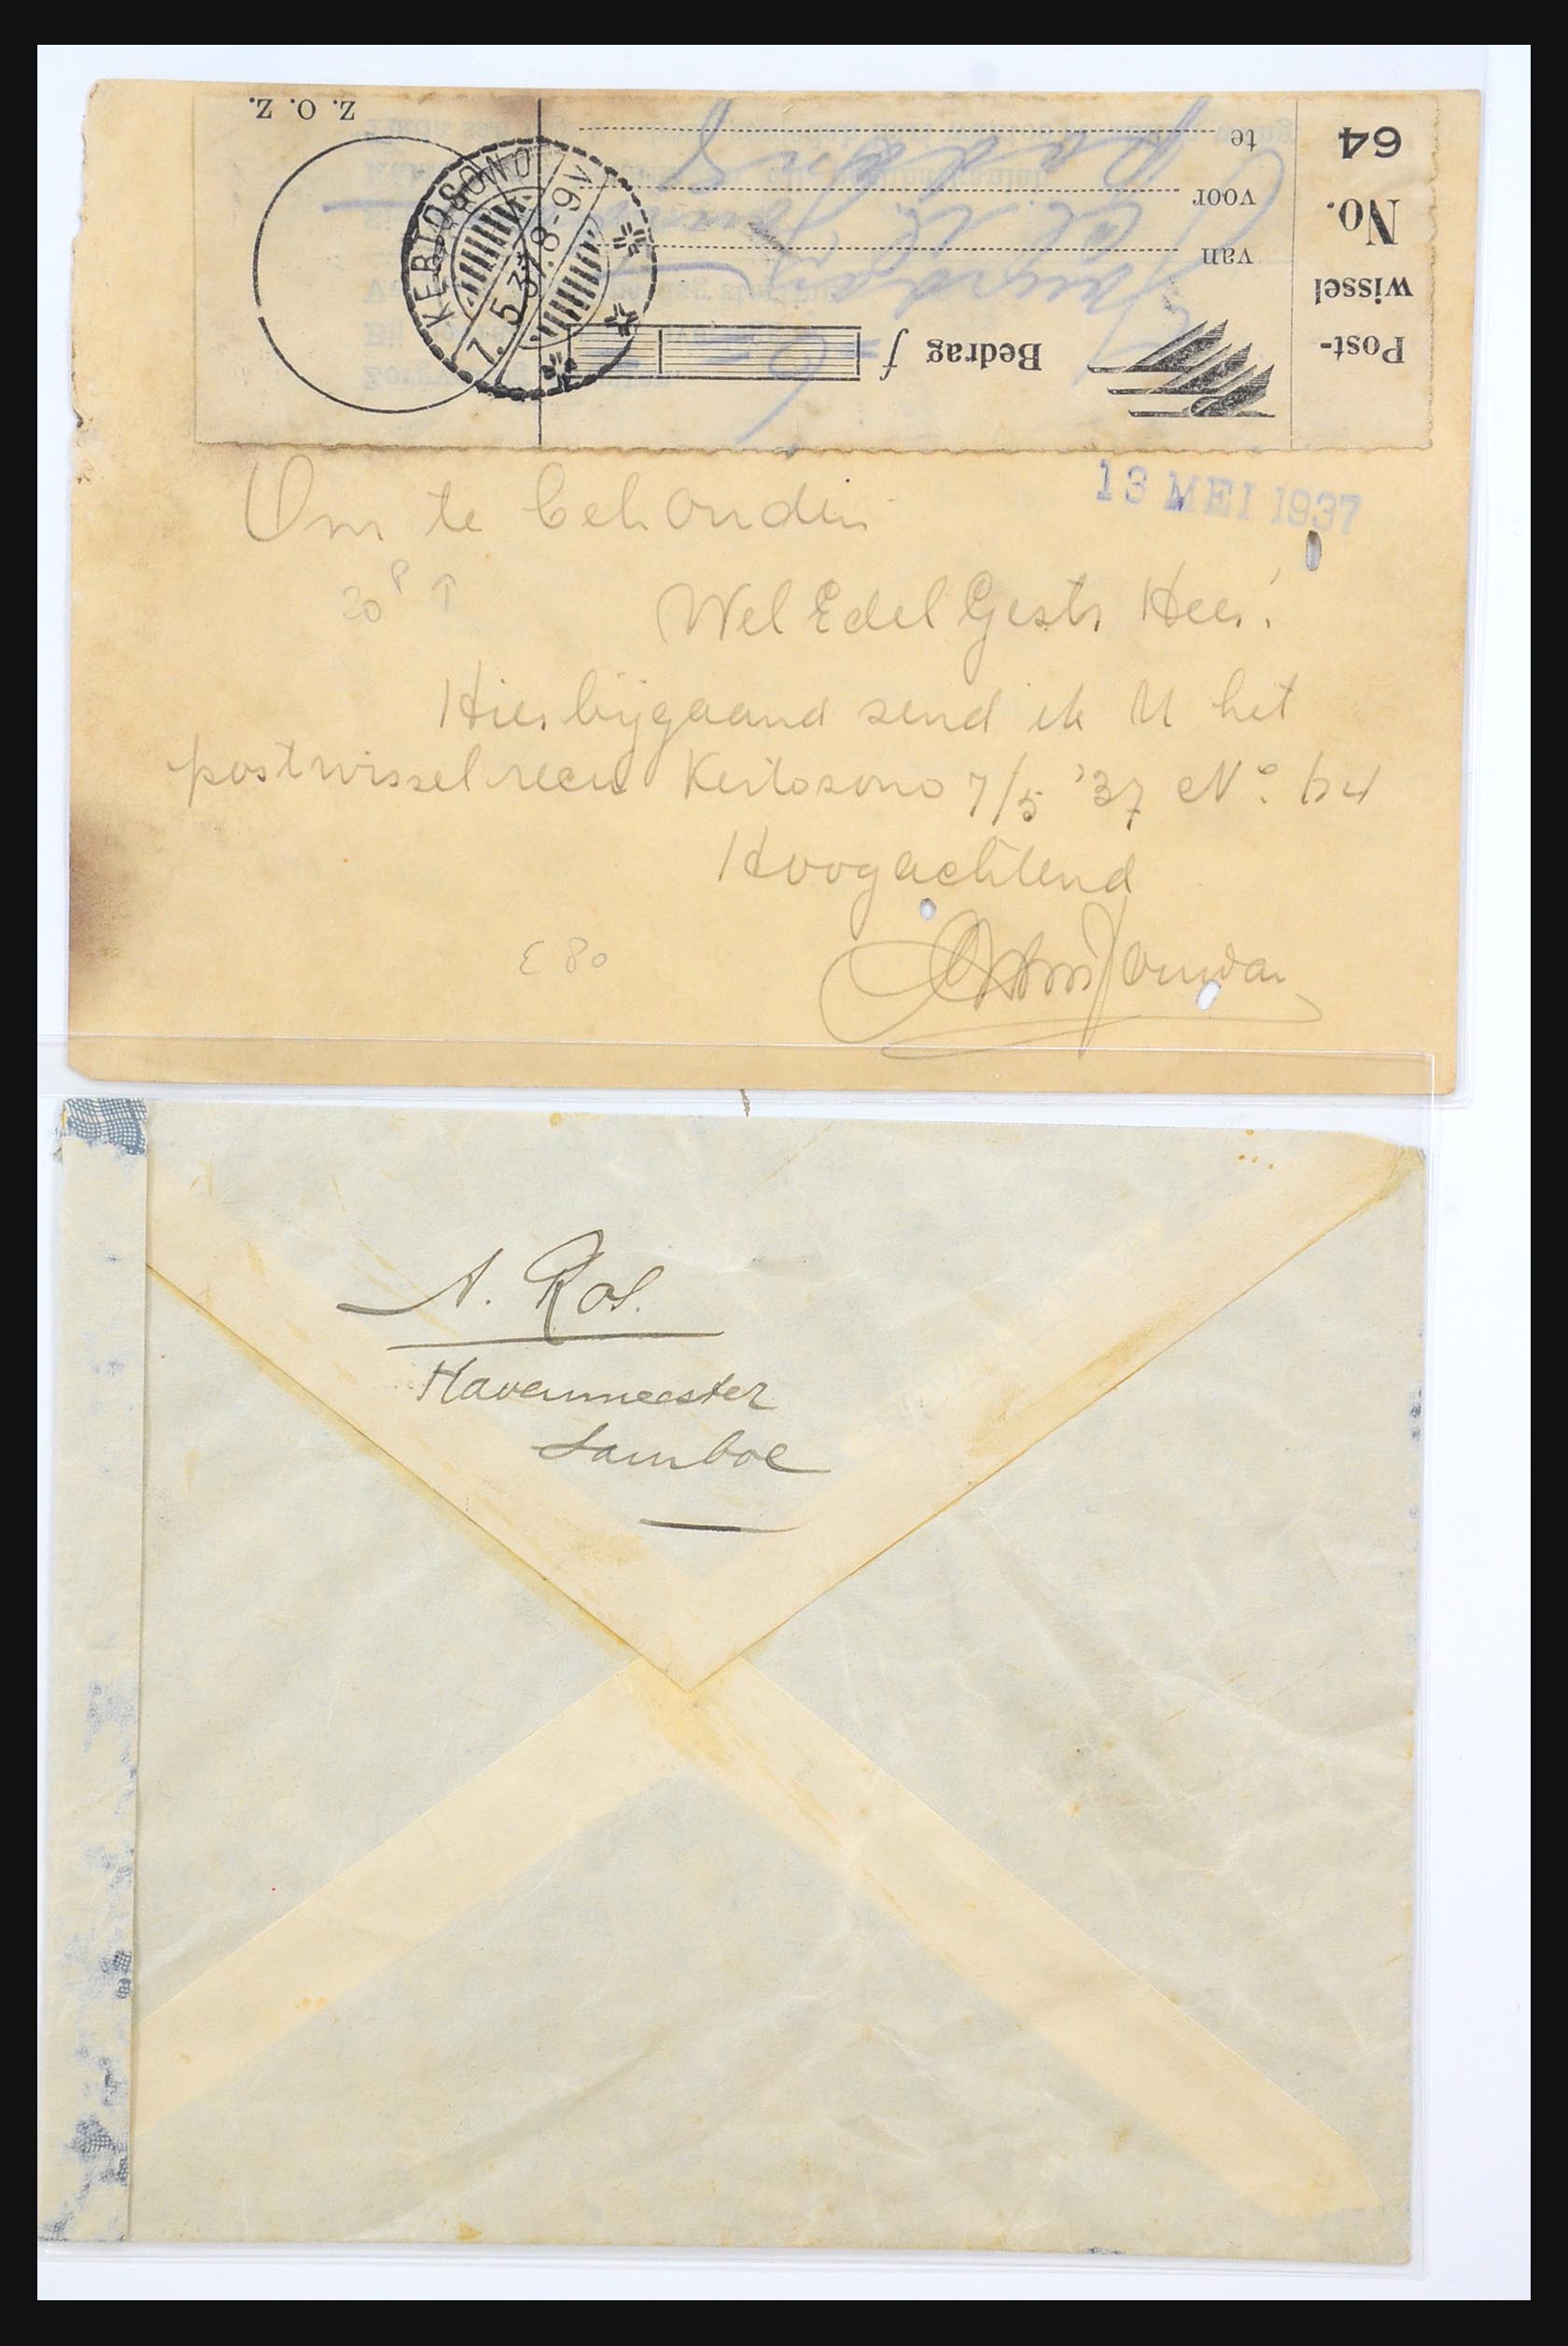 Post-
wissel
No.
64
Bedrag f
van
voor
te
Z. O. Z.
KERTOSONO
7.5.37.8-9V
Om te behouden
13 MEI 1937
20
Wel Edel Gestr Heer!
Hierbijgaand zend ik U het
postwisselrecu Kertosono 7/5 '37 No. 64
Hoogachtend
£ 80
A. Rol.
Havenmeester
Samboe